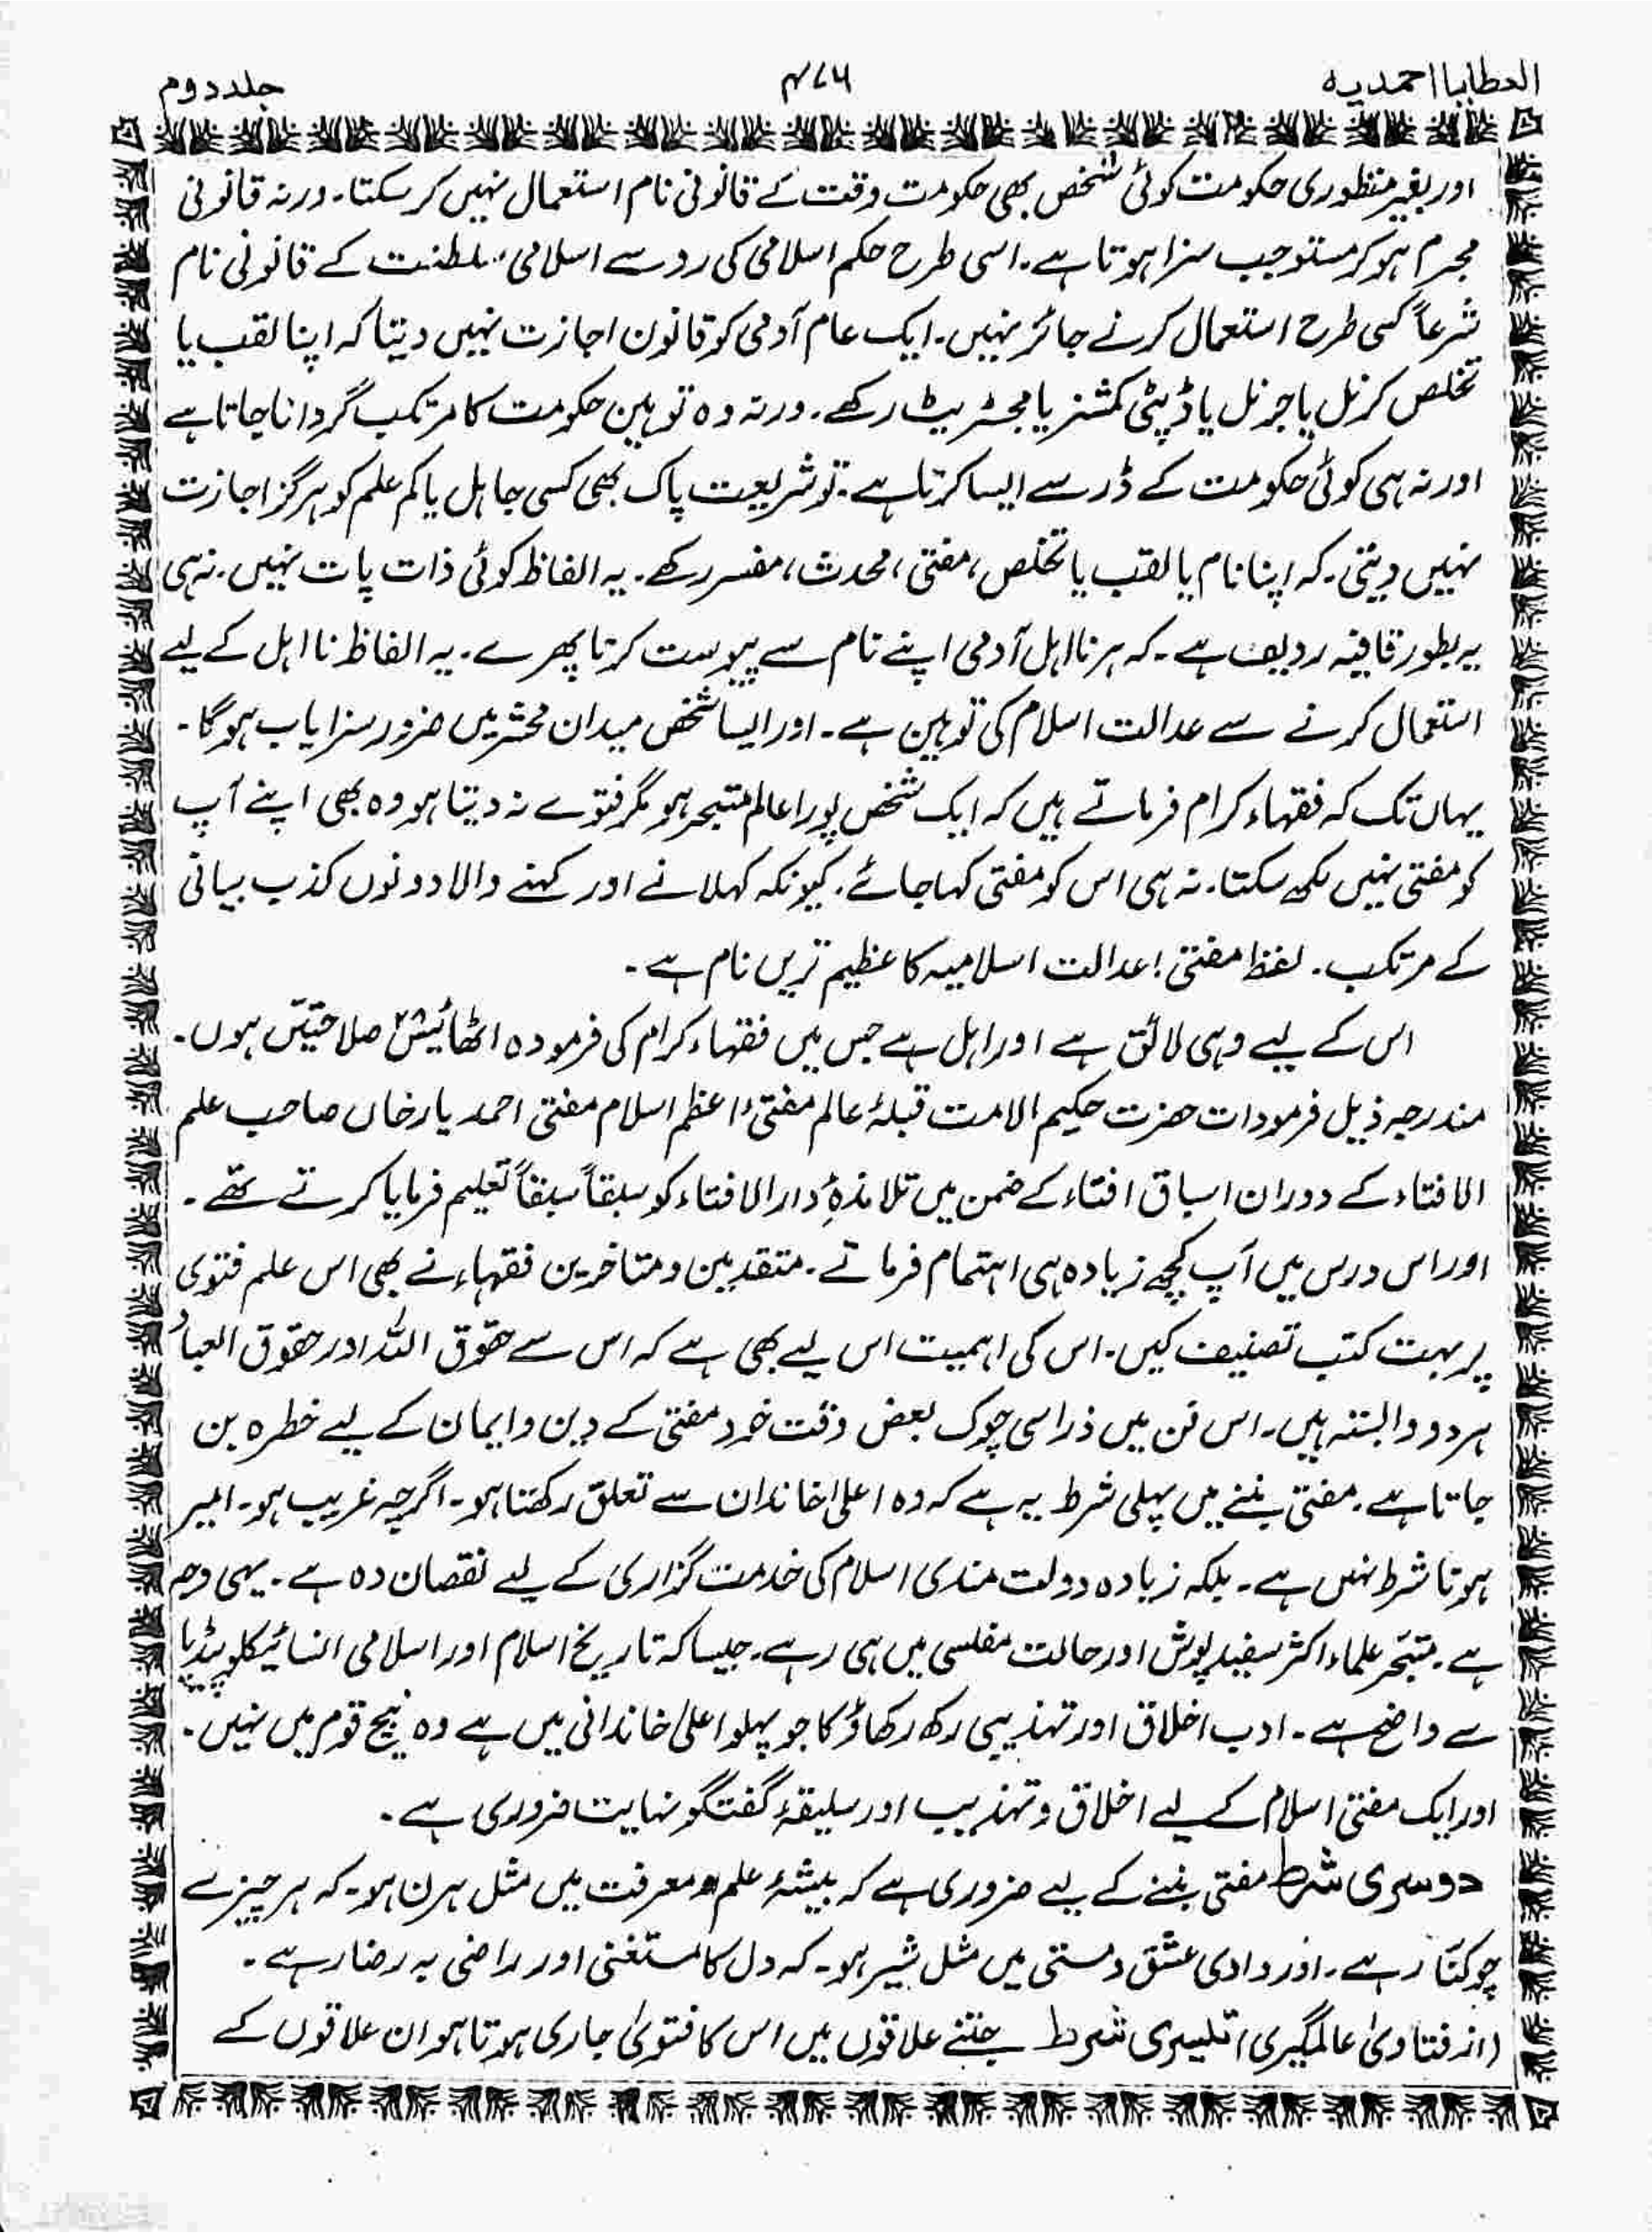 العطایا احمدیہ ۴۷۶ جلد دوم
اور بغیر منظوری حکومت کوئی شخص بھی حکومت وقت کے قانونی نام استعمال نہیں کر سکتا۔ ورنہ قانونی
مجرم ہو کر مستوجب سزا ہوتا ہے۔ اسی طرح حکم اسلامی کی رو سے اسلامی سلطنت کے قانونی نام
شرعاً کسی طرح استعمال کرنے جائز نہیں۔ ایک عام آدمی کو قانون اجازت نہیں دیتا کہ اپنا لقب یا
تخلص کرنل یا جرنل یا ڈپٹی کمشنر یا مجسٹریٹ رکھے۔ ورنہ وہ توہین حکومت کا مرتکب گردانا جاتا ہے
اور نہ ہی کوئی حکومت کے ڈر سے ایسا کرتا ہے۔ تو شریعت پاک بھی کسی جاہل یا کم علم کو ہرگز اجازت
نہیں دیتی۔ کہ اپنا نام یا لقب یا تخلص، مفتی، محدث، مفسر رکھے۔ یہ الفاظ کوئی ذات پات نہیں۔ نہ ہی
یہ بطور قافیہ ردیف ہے۔ کہ ہر نااہل آدمی اپنے نام سے پیوست کرتا پھرے۔ یہ الفاظ نااہل کے لیے
استعمال کرنے سے عدالت اسلام کی توہین ہے۔ اور ایسا شخص میدان محشر میں ضرور سزا یاب ہوگا۔
یہاں تک کہ فقہاء کرام فرماتے ہیں کہ ایک شخص پورا عالم متبحر ہو مگر فتوے نہ دیتا ہو وہ بھی اپنے آپ
کو مفتی نہیں لکھ سکتا۔ نہ ہی اس کو مفتی کہا جائے۔ کیونکہ کہلانے اور کہنے والا دونوں کذب بیانی
کے مرتکب۔ لفظ مفتی! عدالت اسلامیہ کا عظیم ترین نام ہے۔
اس کے لیے وہی لائق ہے اور اہل ہے جس میں فقہاء کرام کی فرمودہ اٹھائیس ۲۸ صلاحیتیں ہوں۔
مندرجہ ذیل فرمودات حضرت حکیم الامت قبلۂ عالم مفتیٔ اعظم اسلام مفتی احمد یار خاں صاحب علم
الافتاء کے دوران اسباق افتاء کے ضمن میں تلامذۂ دار الافتاء کو سبقاً سبقاً تعلیم فرمایا کرتے تھے۔
اور اس درس میں آپ کچھ زیادہ ہی اہتمام فرماتے۔ متقدمین و متاخرین فقہاء نے بھی اس علم فتوی
پر بہت کتب تصنیف کیں۔ اس کی اہمیت اس لیے بھی ہے کہ اس سے حقوق اللہ اور حقوق العباد
ہر دو وابستہ ہیں۔ اس فن میں ذرا سی چوک بعض وقت خود مفتی کے دین و ایمان کے لیے خطرہ بن
جاتا ہے۔ مفتی بننے میں پہلی شرط یہ ہے کہ وہ اعلیٰ خاندان سے تعلق رکھتا ہو۔ اگرچہ غریب ہو۔ امیر
ہونا شرط نہیں ہے۔ بلکہ زیادہ دولت مندی اسلام کی خدمت گزاری کے لیے نقصان دہ ہے۔ یہی وجہ
ہے۔ متبحر علماء اکثر سفید پوش اور حالت مفلسی میں ہی رہے۔ جیسا کہ تاریخ اسلام اور اسلامی انسائیکلوپیڈیا
سے واضح ہے۔ ادب اخلاق اور تہذیبی رکھ رکھاؤ کا جو پہلو اعلیٰ خاندانی میں ہے وہ نیچ قوم میں نہیں۔
اور ایک مفتی اسلام کے لیے اخلاق و تہذیب اور سلیقۂ گفتگو نہایت ضروری ہے۔
دوسری شرط مفتی بننے کے لیے ضروری ہے کہ بیشۂ علم و معرفت میں مثل ہرن ہو۔ کہ ہر چیز سے
چوکنّا رہے۔ اور وادی عشق و مستی میں مثل شیر ہو۔ کہ دل کا مستغنی اور راضی بہ رضا رہے۔
(از فتاویٰ عالمگیری) تیسری شرط جتنے علاقوں میں اس کا فتویٰ جاری ہوتا ہو ان علاقوں کے